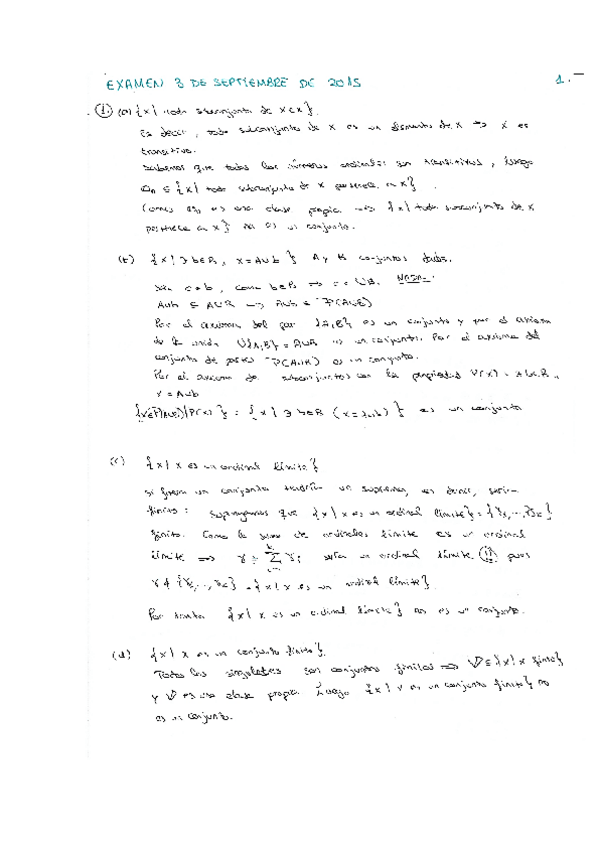 EXAMEN 3 DE SEPTIEMBRE DE 2015 1.-
① (a) {x | todo subconjunto de x ∈ x}.
Es decir, todo subconjunto de x es un elemento de x ⇒ x es
transitivo.
Sabemos que todos los números ordinales son transitivos, luego
On ⊆ {x | todo subconjunto de x pertenece a x}.
Como es una clase propia ⇒ {x | todo subconjunto de x
pertenece a x} no es un conjunto.
(b) {x | ∃ b∈B, x = A∪b} A y B conjuntos dados.
c∈b, como b∈B ⇒ c ∈ ∪B.
A∪b ⊆
Por el axioma del par {A,B} es un conjunto y por el axioma
de la unión ∪{A,B} = A∪B es un conjunto. Por el axioma del
conjunto de partes P(A∪B) es un conjunto.
Por el axioma de subconjuntos con la propiedad
x = A∪b
= {x | ∃ b∈B (x = A∪b)} es un conjunto
(c) {x | x es un ordinal límite}
Si fuera un conjunto tendría un supremo, es decir, sería
finito: Supongamos que {x | x es un ordinal límite} =
finito. Como la suma de ordinales límite es un ordinal
límite ⇒ sería un ordinal límite pues
= {x | x es un ordinal límite}.
Por tanto {x | x es un ordinal límite} no es un conjunto.
(d) {x | x es un conjunto finito}.
Todos los singletes son conjuntos finitos ⇒ V ⊆ {x | x finito}
y V es una clase propia. Luego {x | x es un conjunto finito} no
es un conjunto.